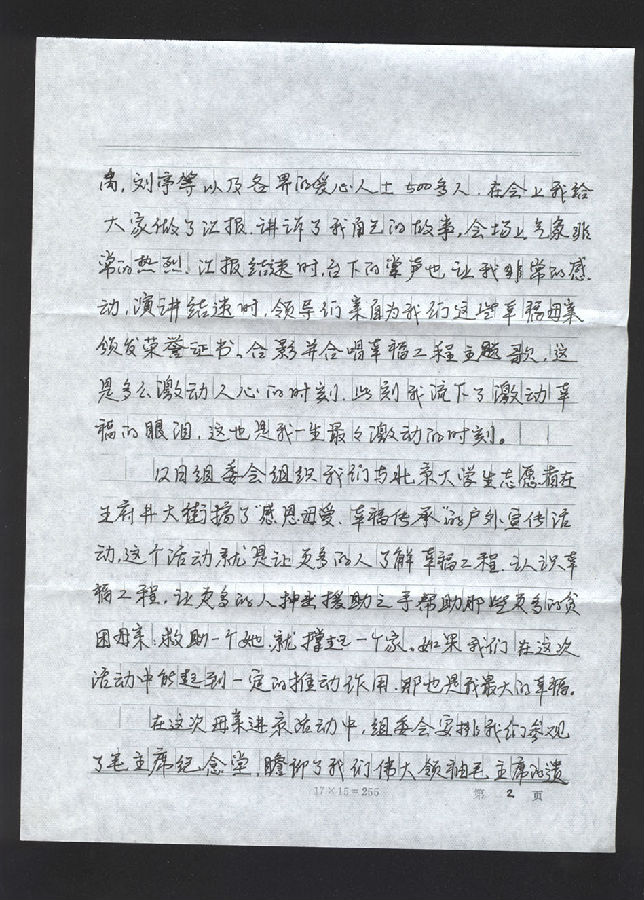 禹，刘亭等以及各界的爱心人士500多人，在会上我给
大家做了汇报，讲诉了我自己的故事，会场上气象非
常的热烈，汇报结速时，台下的掌声也让我非常的感
动，演讲结速时，领导们亲自为我们这些幸福母亲
颁发荣誉证书，合影并合唱幸福工程主题歌，这
是多么激动人心的时刻，此刻我流下了激动幸
福的眼泪，这也是我一生最令激动的时刻。
12日组委会组织我们与北京大学生志愿者在
王府井大街搞了“感恩母爱、幸福传承”的户外宣传活
动，这个活动就是让更多的人了解幸福工程，认识幸
福工程，让更多的人抻出援助之手帮助那些更多的贫
困母亲，救助一个她，就撑起一个家。如果我们在这次
活动中能起到一定的推动作用，那也是我最大的幸福。
在这次母亲进京活动中，组委会安排我们参观
了毛主席纪念堂，瞻仰了我们伟大领袖毛主席的遗
17×15=255
第 2 页